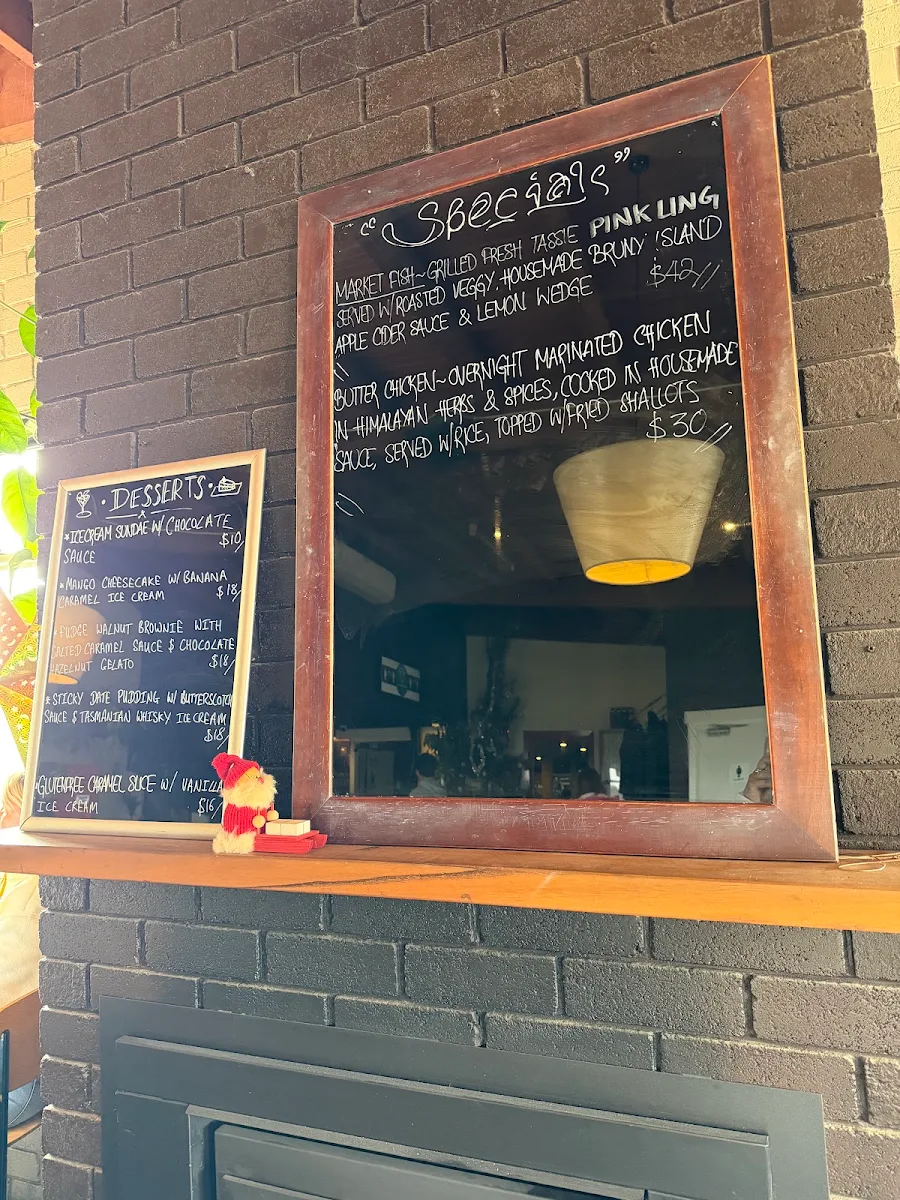 "Specials"
MARKET FISH~GRILLED FRESH TASSIE PINK LING
SERVED W/ROASTED VEGGY. HOUSEMADE BRUNY ISLAND
APPLE CIDER SAUCE & LEMON WEDGE $42//
BUTTER CHICKEN~OVERNIGHT MARINATED CHICKEN
IN HIMALAYAN HERBS & SPICES, COOKED IN HOUSEMADE
SAUCE, SERVED W/RICE, TOPPED W/FRIED SHALLOTS
$30//
• DESSERTS •
*ICECREAM SUNDAE W/ CHOCOLATE
SAUCE $10/
*MANGO CHEESECAKE W/ BANANA
CARAMEL ICE CREAM $18/
*FUDGE WALNUT BROWNIE WITH
SALTED CARAMEL SAUCE & CHOCOLATE
HAZELNUT GELATO $18/
*STICKY DATE PUDDING W/ BUTTERSCOTCH
SAUCE & TASMANIAN WHISKY ICE CREAM
$18/
*GLUTENFREE CARAMEL SLICE W/ VANILLA
ICE CREAM $16/